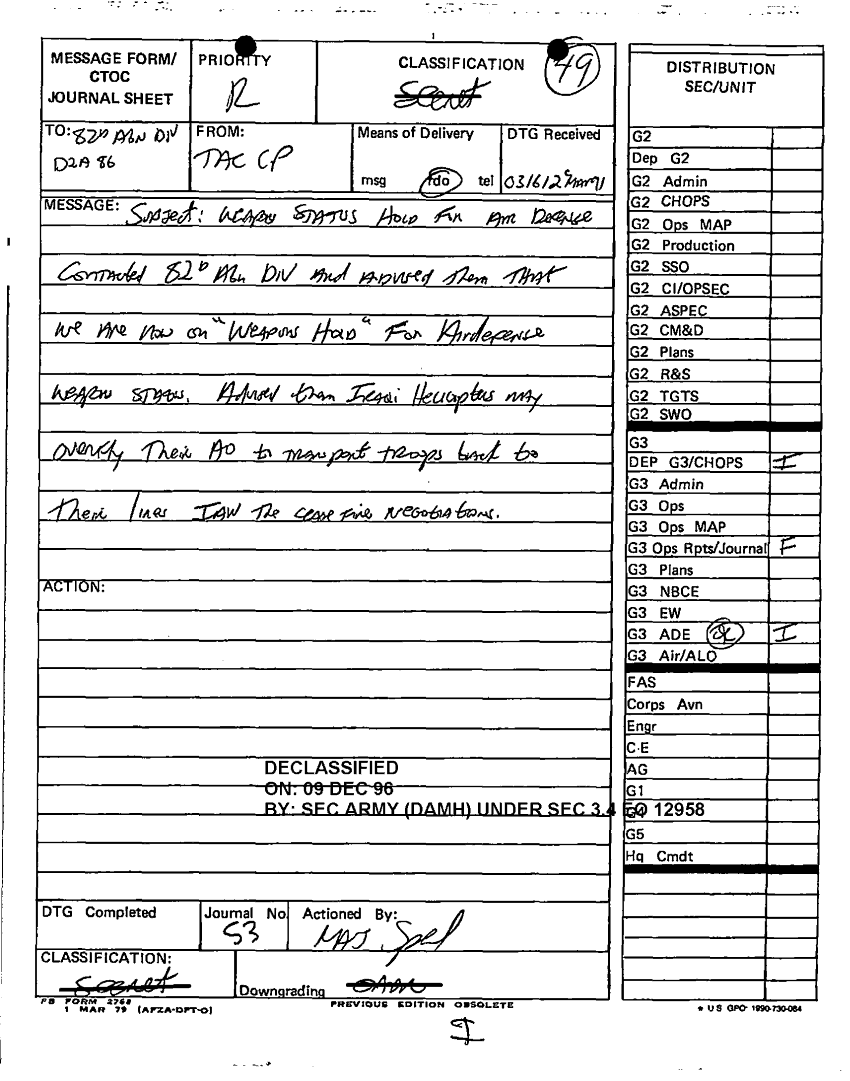 MESSAGE FORM/
CTOC
JOURNAL SHEET
PRIORITY
R
CLASSIFICATION
Secret
49
TO: 82D Abn Div
D2A 86
FROM:
TAC CP
Means of Delivery
msg rdo tel
DTG Received
031612CMar91
MESSAGE: Subject: Weapon Status Hold For Air Defense
Contacted 82D Abn Div and advised them that
we are now on "Weapons Hold" For Airdefense
weapon status. Advised them Iraqi Helicopters may
overfly Their AO to transport troops back to
Their lines IAW The cease fire negotiations.
ACTION:
DECLASSIFIED
ON: 09 DEC 96
BY: SEC ARMY (DAMH) UNDER SEC 3.4 EO 12958
DTG Completed
Journal No.
53
Actioned By:
MAJ
CLASSIFICATION:
Secret
Downgrading
OADR
FB FORM 2768
1 MAR 79 (AFZA-DPT-O)
PREVIOUS EDITION OBSOLETE
I
DISTRIBUTION
SEC/UNIT
G2
Dep G2
G2 Admin
G2 CHOPS
G2 Ops MAP
G2 Production
G2 SSO
G2 CI/OPSEC
G2 ASPEC
G2 CM&D
G2 Plans
G2 R&S
G2 TGTS
G2 SWO
G3
DEP G3/CHOPS I
G3 Admin
G3 Ops
G3 Ops MAP
G3 Ops Rpts/Journal F
G3 Plans
G3 NBCE
G3 EW
G3 ADE I
G3 Air/ALO
FAS
Corps Avn
Engr
C-E
AG
G1
G4
G5
Hq Cmdt
* US GPO 1990-730-084